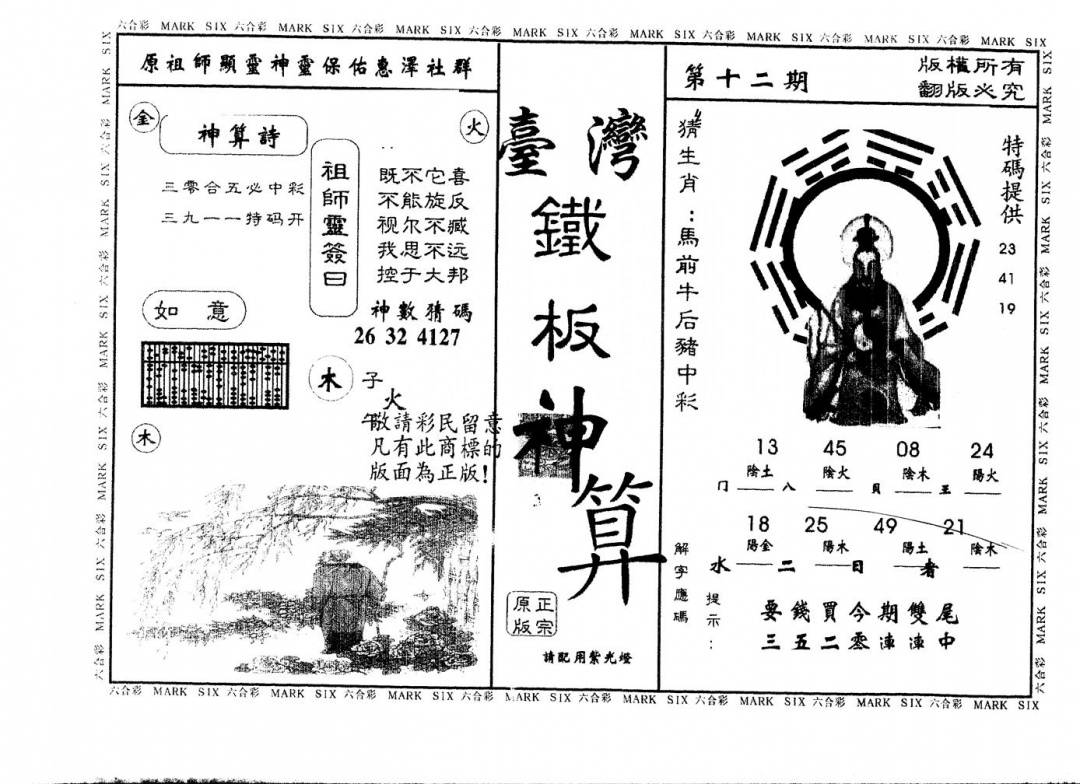 六合彩 MARK SIX 六合彩 MARK SIX 六合彩 MARK SIX 六合彩 MARK SIX 六合彩 MARK SIX 六合彩 MARK SIX 六合彩 MARK SIX 六合彩 MARK SIX
原祖師顯靈神靈保佑惠澤社群
金
火
神算詩
三零合五必中彩
三九一一特码开
祖師靈簽曰
既不它喜
不能旋反
视尔不臧
我思不远
控于大邦
神數猜碼
26 32 4127
如 意
木
子
火
午
敬請彩民留意
凡有此商標的
版面為正版!
木
臺灣
鐵
板
神
算
3
正宗
原版
請配用紫光燈
第十二期
版權所有
翻版必究
猜生肖:馬前牛后豬中彩
特碼提供
23
41
19
13 45 08 24
陰土 陰火 陰木 陽火
冂 八 貝 王
18 25 49 21
陽金 陽木 陽土 陰木
水 二 日 者
解字應碼
提示:
要錢買今期雙尾
三五二零連連中
六合彩 MARK SIX 六合彩 MARK SIX 六合彩 MARK SIX 六合彩 MARK SIX 六合彩 MARK SIX 六合彩 MARK SIX 六合彩 MARK SIX 六合彩 MARK SIX